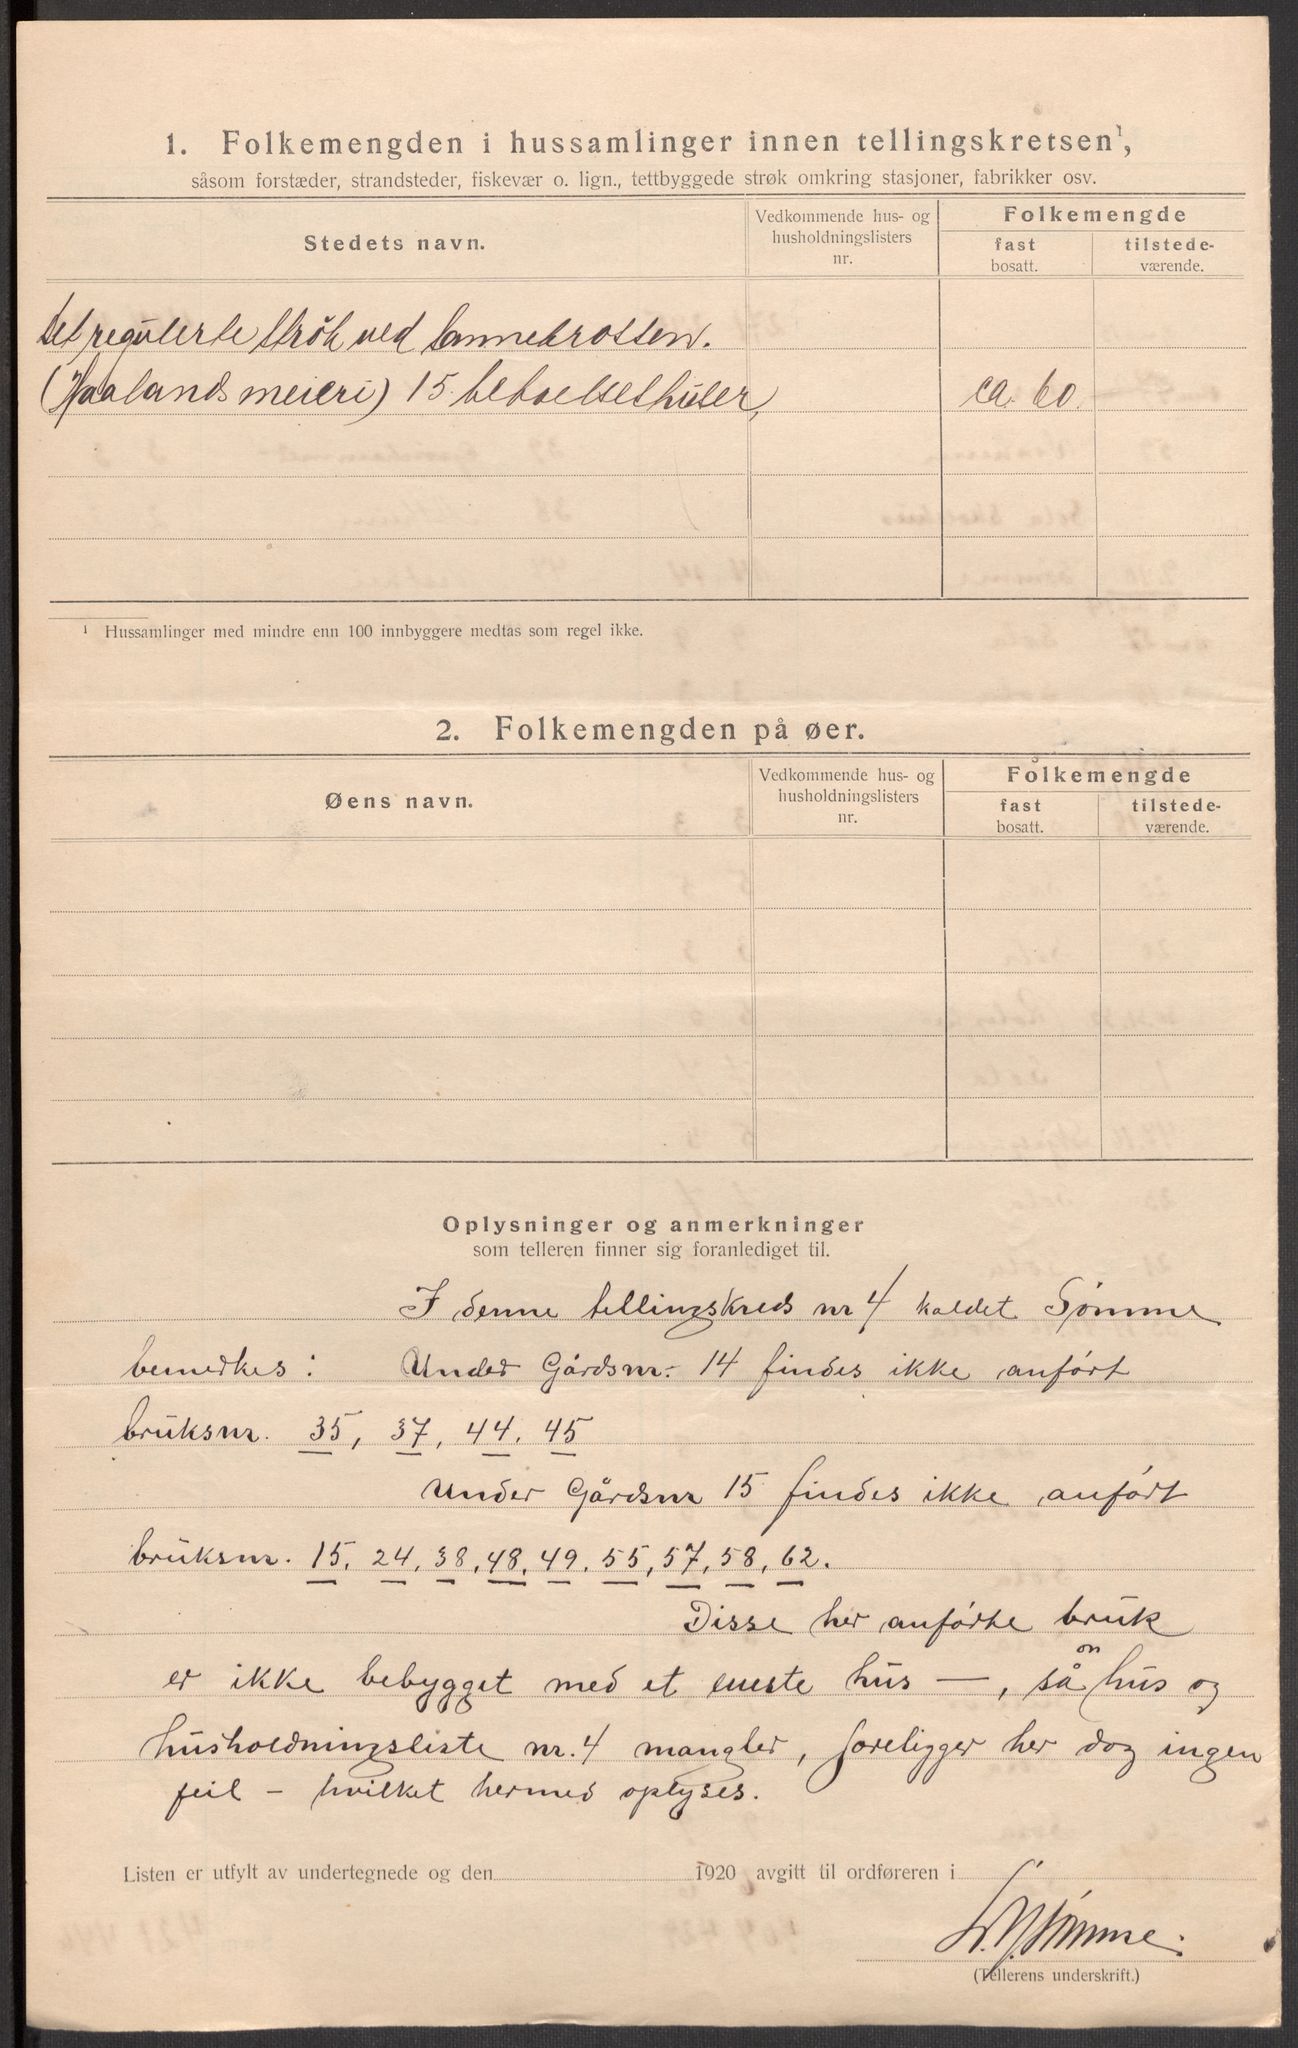 1. Folkemengden i hussamlinger innen tellingskretsen¹,
såsom forstæder, strandsteder, fiskevær o. lign., tettbyggede strøk omkring stasjoner, fabrikker osv.
Stedets navn.
Vedkommende hus- og husholdningslisters nr.
Folkemengde
fast bosatt.
tilstede-værende.
Det regulerte strøk ved
(Haalands meieri) 15 beboelseshuser, ca. 60.
¹ Hussamlinger med mindre enn 100 innbyggere medtas som regel ikke.
2. Folkemengden på øer.
Øens navn.
Vedkommende hus- og husholdningslisters nr.
Folkemengde
fast bosatt.
tilstede-værende.
Oplysninger og anmerkninger
som telleren finner sig foranlediget til.
I denne tellingskreds nr 4 kaldet Sømme
bemerkes: Under Gårdsnr. 14 findes ikke anført
bruksnr. 35, 37, 44, 45
Under Gårdsnr 15 findes ikke anført
bruksnr. 15, 24, 38, 48, 49, 55, 57, 58, 62.
Disse her anførte bruk
er ikke bebygget med et eneste hus —, så om hus og
husholdningsliste nr. 4 mangler, foreligger her dog ingen
feil – hvilket hermed oplyses.
Listen er utfylt av undertegnede og den 1920 avgitt til ordføreren i
Sømme.
(Tellerens underskrift.)